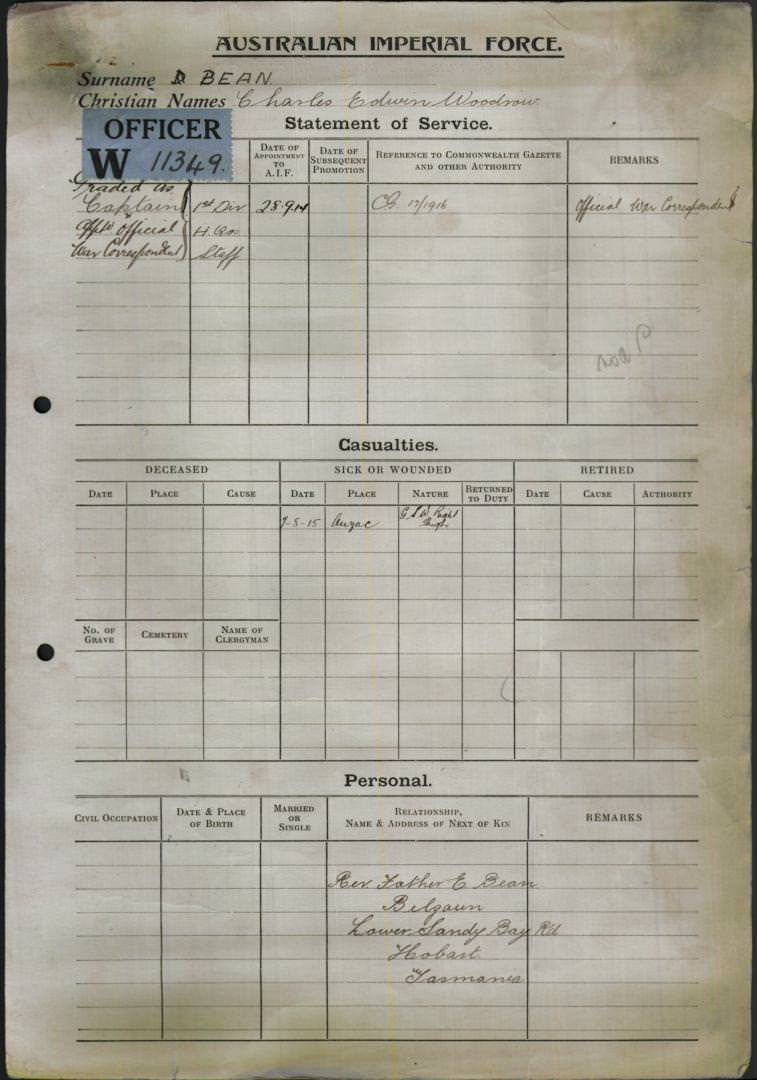 AUSTRALIAN IMPERIAL FORCE.
Surname BEAN
Christian Names Charles Edwin Woodrow
OFFICER
W 11349.
Statement of Service.
DATE OF APPOINTMENT TO A.I.F.
DATE OF SUBSEQUENT PROMOTION
REFERENCE TO COMMONWEALTH GAZETTE AND OTHER AUTHORITY
REMARKS
Graded as
Captain 1st Div 28.9.14 CG 17/1916 Official War Correspondent
Official
War Correspondent Staff
Casualties.
DECEASED SICK OR WOUNDED RETIRED
DATE PLACE CAUSE DATE PLACE NATURE RETURNED TO DUTY DATE CAUSE AUTHORITY
7-8-15 Anzac G.S.W. Right
Thigh
No. OF GRAVE CEMETERY NAME OF CLERGYMAN
Personal.
CIVIL OCCUPATION DATE & PLACE OF BIRTH MARRIED OR SINGLE RELATIONSHIP, NAME & ADDRESS OF NEXT OF KIN REMARKS
Rev Father E Bean
Belgaum
Lower Sandy Bay Rd
Hobart
Tasmania